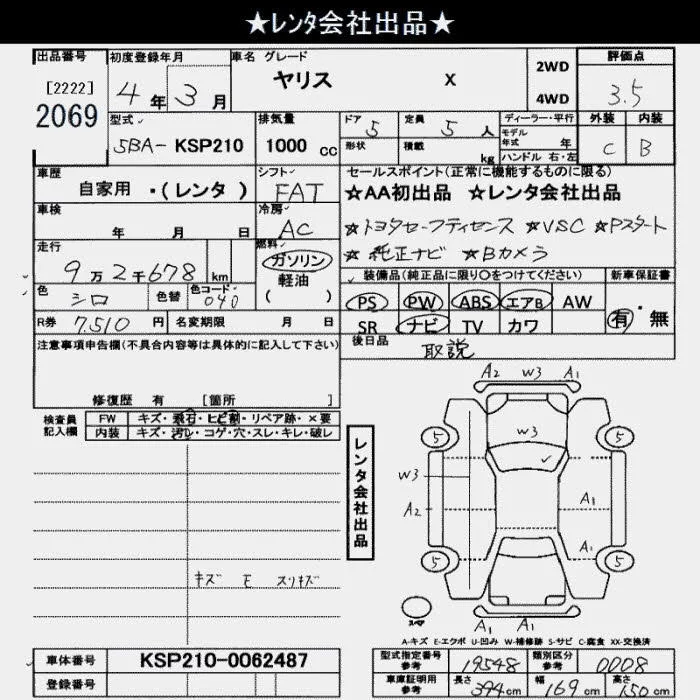 ★レンタ会社出品★
出品番号 初度登録年月 車名 グレード 評価点
[2222] 4年 3月 ヤリス X 2WD 3.5
2069 4WD
型式 排気量 ドア 5 定員 5人 ディーラー・平行 外装 内装
5BA- KSP210 1000cc 形状 積載 kg モデル年式 年 C B
ハンドル 右・左
車歴 シフト セールスポイント(正常に機能するものに限る)
自家用 ・(レンタ) FAT ☆AA初出品 ☆レンタ会社出品
車検 年 月 日 冷房 AC ☆トヨタセーフティセンス ☆VSC ☆Pスタート
走行 燃料 ☆純正ナビ ☆Bカメラ
9万2千678km ガソリン
軽油
( )
装備品(純正品に限り○をつけてください) 新車保証書
色 シロ 色替 色コード 040 PS PW ABS エアB AW 有・無
R券 7.510円 名変期限 月 日 SR ナビ TV カワ
注意事項申告欄(不具合内容等は具体的に記入して下さい) 後日品 取説
修復歴 有 [箇所
検査員記入欄 FW キズ・飛石・ヒビ割・リペア跡・×要
内装 キズ・汚レ・コゲ・穴・スレ・キレ・破レ
A2 W3 A1
5 W3 5
W3
A2 A1
A1
5 5
レンタ会社出品
キズ E スリキズ
スペア
A1 A1
A-キズ E-エクボ U-凹み W-補修跡 S-サビ C-腐食 XX-交換済
車体番号 KSP210-0062487 型式指定番号 参考 19548 類別区分 参考 0008
登録番号 車庫証明用 参考 長さ 394cm 幅 169cm 高さ 150cm